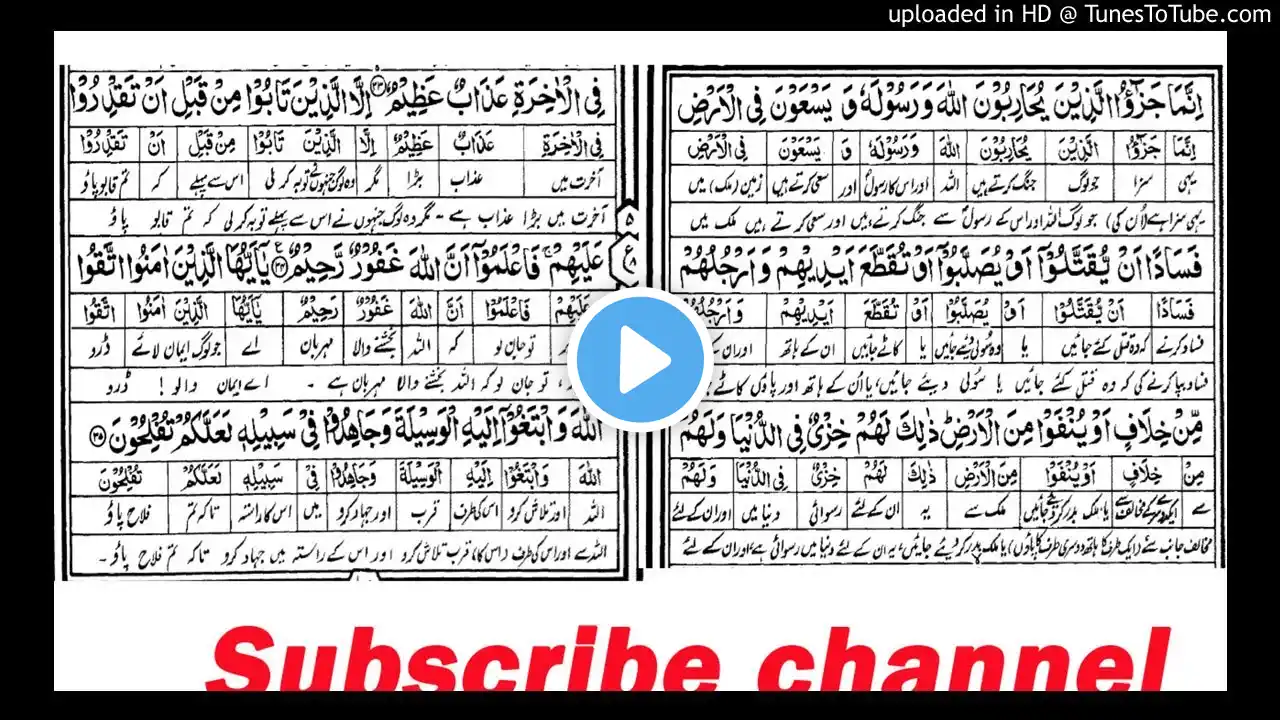 uploaded in HD @ TunesToTube.com
اِنَّمَا جَزٰٓؤُا الَّذِیْنَ یُحَارِبُوْنَ اللّٰهَ وَ رَسُوْلَهٗ وَ یَسْعَوْنَ فِی الْاَرْضِ
اِنَّمَا جَزٰٓؤُا الَّذِیْنَ یُحَارِبُوْنَ اللّٰهَ وَرَسُوْلَهٗ وَ یَسْعَوْنَ فِی الْاَرْضِ
یہی سزا جو لوگ جنگ کرتے ہیں اللہ اور اس کا رسول اور سعی کرتے ہیں زمین (ملک) میں
یہی سزا ہے (اُن کی) جو لوگ اللہ اور اس کے رسول سے جنگ کرتے ہیں اور سعی کرتے ہیں ملک میں
فَسَادًا اَنْ یُّقَتَّلُوْۤا اَوْ یُصَلَّبُوْۤا اَوْ تُقَطَّعَ اَیْدِیْهِمْ وَ اَرْجُلُهُمْ
فَسَادًا اَنْ یُّقَتَّلُوْۤا اَوْ یُصَلَّبُوْۤا اَوْ تُقَطَّعَ اَیْدِیْهِمْ وَ اَرْجُلُهُمْ
فساد کرنے کہ وہ قتل کئے جائیں یا وہ سُولی دیئے جائیں یا کاٹے جائیں ان کے ہاتھ اور ان کے
فساد بپا کرنے کی کہ وہ قتل کئے جائیں یا سُولی دیئے جائیں یا اُن کے ہاتھ اور پاؤں کاٹے
مِّنْ خِلَافٍ اَوْ یُنْفَوْا مِنَ الْاَرْضِ ؕ ذٰلِكَ لَهُمْ خِزْیٌ فِی الدُّنْیَا وَ لَهُمْ
مِنْ خِلَافٍ اَوْ یُنْفَوْا مِنَ الْاَرْضِ ذٰلِكَ لَهُمْ خِزْیٌ فِی الدُّنْیَا وَ لَهُمْ
سے ایکدوسرے کے مخالف سے یا ملک بدر کر دیئے جائیں ملک سے یہ ان کے لئے رسوائی دنیا میں اور ان کے لئے
مخالف جانب سے (ایک طرف کا ہاتھ دوسری طرف کا پاؤں) یا ملک بدر کر دیئے جائیں، یہ ان کے لئے دنیا میں رسوائی ہے، اور ان کے لئے
فِی الْاٰخِرَةِ عَذَابٌ عَظِیْمٌ ۳۳ اِلَّا الَّذِیْنَ تَابُوْا مِنْ قَبْلِ اَنْ تَقْدِرُوْا
فِی الْاٰخِرَةِ عَذَابٌ عَظِیْمٌ اِلَّا الَّذِیْنَ تَابُوْا مِنْ قَبْلِ اَنْ تَقْدِرُوْا
آخرت میں عذاب بڑا مگر وہ لوگ جنہوں نے توبہ کر لی اس سے پہلے کہ تم قابو پاؤ
آخرت میں بڑا عذاب ہے - مگر وہ لوگ جنہوں نے اس سے پہلے توبہ کر لی کہ تم قابو پاؤ
عَلَیْهِمْ ۚ فَاعْلَمُوْۤا اَنَّ اللّٰهَ غَفُوْرٌ رَّحِیْمٌ ۳۴ یٰۤاَیُّهَا الَّذِیْنَ اٰمَنُوا اتَّقُوا
عَلَیْهِمْ فَاعْلَمُوْۤا اَنَّ اللّٰهَ غَفُوْرٌ رَحِیْمٌ یٰۤاَیُّهَا الَّذِیْنَ اٰمَنُوا اتَّقُوا
تو جان لو کہ اللہ بخشنے والا مہربان اے جو لوگ ایمان لائے ڈرو
تو جان لو کہ اللہ بخشنے والا مہربان ہے - اے ایمان والو! ڈرو
اللّٰهَ وَ ابْتَغُوْۤا اِلَیْهِ الْوَسِیْلَةَ وَ جَاهِدُوْا فِیْ سَبِیْلِهٖ لَعَلَّكُمْ تُفْلِحُوْنَ ۳۵
اللّٰهَ وَابْتَغُوْۤا اِلَیْهِ الْوَسِیْلَةَ وَجَاهِدُوْا فِیْ سَبِیْلِهٖ لَعَلَّكُمْ تُفْلِحُوْنَ
اللہ اور تلاش کرو اس کی طرف قرب اور جہاد کرو میں اس کا راستہ تاکہ تم فلاح پاؤ
اللہ سے اور اس کی طرف (اس کا) قرب تلاش کرو اور اس کے راستہ میں جہاد کرو تاکہ تم فلاح پاؤ -
Subscribe channel